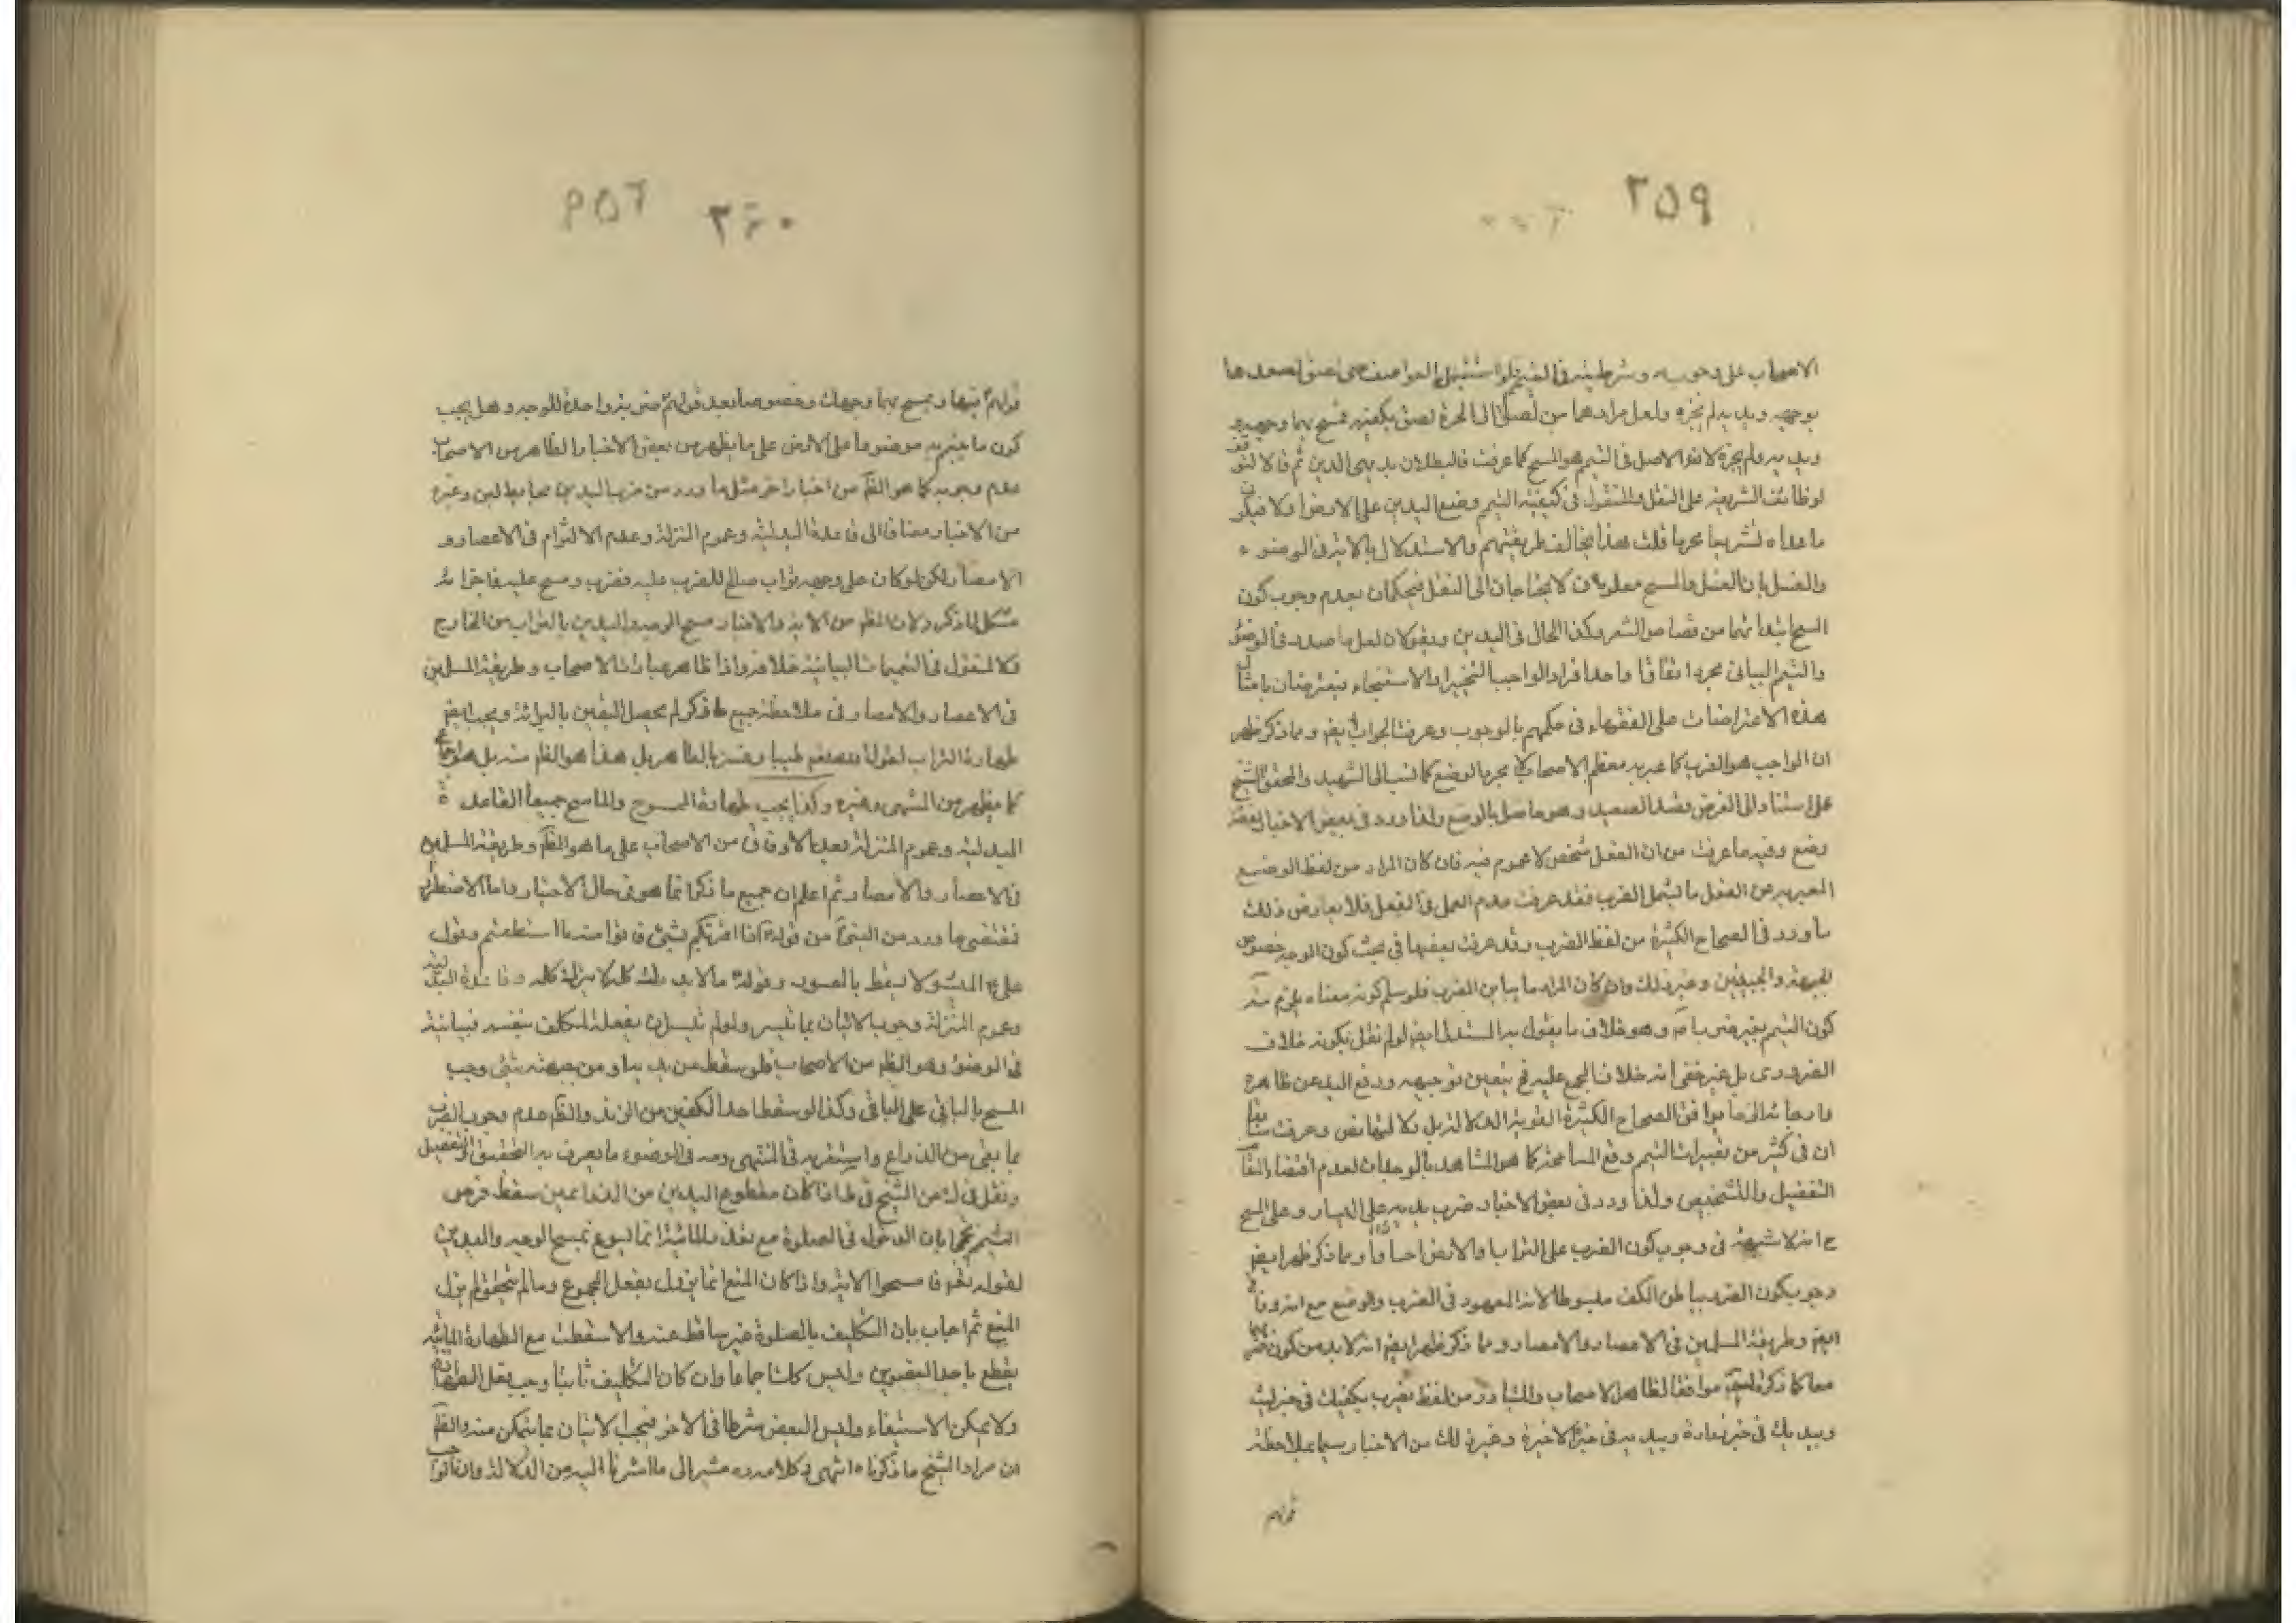 ٢٥٩
الاصحاب على وجوبه وشرطيته في التيمم فلو استقبل العواصف حتى لصق صعيدها
بوجهه ويديه لم يجزه ولعل مرادهما من لصق
ويديه ولم يجزه لانه الاصل في التيمم هو المسح كما عرفت فالبطلان بديهي الدين ثم قالا لتوقف
لوظائف الشرعية على النقل والمنقول في كيفية التيمم وضع اليدين على الارض ولا فيكون
ما عداه تشريعا محرما قلت هذا يخالف طريقتهم والاستدلال بالاية في الوضوء
والغسل بان الغسل والمسح معلومان لا يحتاجان الى النقل فيحكمان بعدم وجوب كون
المسح ابتداؤها من قصاص الشعر وكذا الحال في اليدين ويقولان لعل ما صدر في الوضوء
والتيمم البياني مجرد اتفاق او احد افراد الواجب التخييري او الاستحباء يتعرضان بامثال
هذه الاعتراضات على الفقهاء في حكمهم بالوجوب وعرفت الجواب ايضا ومما ذكر ظهر
ان الواجب هو الضرب كما عبر به معظم الاصحاب لا مجرد الوضع كما نسب الى الشهيد والمحقق الشيخ
على استنادا الى الغرض قصد الصعيد وهو حاصل بالوضع ولذا ورد في بعض الاخبار لفظة
وضع وفيه ما عرفت من ان الفعل شخص لا عموم فيه فان كان المراد من لفظ الوضع
المعبر به عن الفعل ما يشمل الضرب فقد عرفت عدم العمل في الفعل فلا يعارض ذلك
ما ورد في الصحاح الكثيرة من لفظ الضرب وقد عرفت بعضها في بحث كون الوجه خصوص
الجبهة والجبينين وغير ذلك وان كان المراد ما يباين الضرب فلو سلم كونه معناه يلزم منه
كون التيمم بغير ضرب وهو خلاف ما يقول به المستدل ايضا لو لم نقل بكونه خلاف
الضروري بل غير خفي انه خلاف المجمع عليه فح يتعين توجيهه ورفع اليد عن ظاهره
وارجاعه الى ما يوافق الصحاح الكثيرة القوية الدلالة بل دلالتها نص وعرفت سابقا
ان في كثير من تعبيرات التيمم وقع المسامحة كما هو المشاهد بالوجدان لعدم اقتضاء المقام
التفصيل والتشخيص ولذا ورد في بعض الاخبار ضرب بيديه على اليسار وعلى المسح
ح انه لا شبهة في وجوب كون الضرب على التراب او الارض ومما ذكر ظهر ايضا
وجوب كون الضرب بباطن الكف مبسوطا لانه المعهود في الضرب والوضع مع انه وفاقي
ايضا وطريقة المسلمين في الاعصار والامصار ومما ذكر ظهر ايضا انه لا بد من كون ضربهما
معا كما ذكره موافقا لظاهر الاصحاب والمتبادر من لفظ تضرب بكفيك في خبر ليث
وبيديك في خبر زرارة وبيديه في خبره الاخيرة وغير ذلك من الاخبار سيما بملاحظة
قولهم
٢٦٠ ٢٥٦
قولهم فيها ويمسح بهما وجهك وخصوصا بعد قولهم ضربة واحدة للوجه وهل يجب
كون ما يتيمم به موضوعا على الارض على ما يظهر من بعض الاخبار الظاهر من الاصحاب
عدم وجوبه كما هو الظ من اخبار اخر مثل ما ورد من ضرب اليدين حايط لبن وغيره
من الاخبار مضافا الى قاعدة البدلية وعموم المنزلة وعدم الالتزام في الاعصار و
الامصار ولكن لو كان على وجهه تراب صالح للضرب عليه فضرب ومسح عليه فاجزائه
مشكل لما ذكر ولان الظ من الاية والاخبار مسح الوجه واليدين بالتراب من الخارج
والمنقول في التيممات البيانية خلافه وكذا ظاهر عبارات الاصحاب وطريقة المسلمين
في الاعصار والامصار في ملاحظة جميع ما ذكر لم يحصل اليقين بالبرائة ويجب ايضا
طهارة التراب لقوله تعالى صعيدا طيبا وفسر بالطاهر بل هذا هو الظ منه بل هو اجماعي
كما يظهر من المنتهى وغيره وكذا يجب طهارة الممسوح والماسح جميعا لقاعدة
البدلية وعموم المنزلة بعد الاوفاق من الاصحاب على ما هو الظ وطريقة المسلمين
في الاعصار والامصار ثم اعلم ان جميع ما ذكر انما هو في حال الاختيار واما الاضطرار
فمقتضى ما ورد من النبي من قوله اذا امرتكم بشيء فاتوا منه ما استطعتم وقول
علي الميسور لا يسقط بالمعسور وقوله ما لا يدرك كله لا يترك كله وقاعدة البدلية
وعموم المنزلة وجوب الاتيان بما تيسر ولو لم يتيسر ان يفعله المكلف بنفسه فنيابة
في الوضوء وهو الظ من الاصحاب فلو سقط من يديه او من جبهته شيء وجب
المسح بالباقي على الباقي وكذا لو سقط احد الكفين من الزند والظ عدم وجوب الضرب
بما بقي من الذراع واستقربه في المنتهى ومر في الوضوء ما يعرف به التحقيق والتفصيل
ونقل في عن الشيخ في ط اذا كان مقطوع اليدين من الذراعين سقط فرض
التيمم محتجا بان الدخول في الصلوة مع تعذر المائية انما يسوغ بمسح الوجه واليدين
لقوله تعالى فامسحوا الاية واذا كان المنع انما يزول بفعل المجموع ومالم يتحقق لم يزل
المنع ثم اجاب بان التكليف بالصلوة غير ساقط عنه والا سقطت مع الطهارة المائية
بقطع احد العضوين وليس كذلك اجماعا وان كان التكليف ثابتا وجب فعل الطهارة
ولا يمكن الاستيفاء وليس البعض شرطا في الاخر فيجب الاتيان بما يتمكن منه والظ
ان مراد الشيخ ما ذكرناه انتهى كلامه مشير الى ما اشرنا اليه من الدلالة وان قالوا